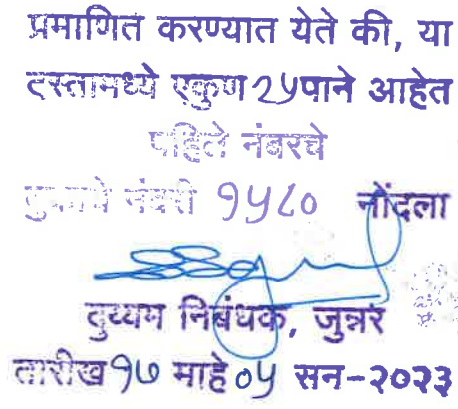 प्रमाणित करण्यात येते की, या
दस्तामध्ये एकुण २५ पाने आहेत
पहिले नंबरचे
बुकाचे नंबरी १५८० नोंदला
दुय्यम निबंधक, जुन्नर
तारीख १७ माहे ०५ सन-२०२३